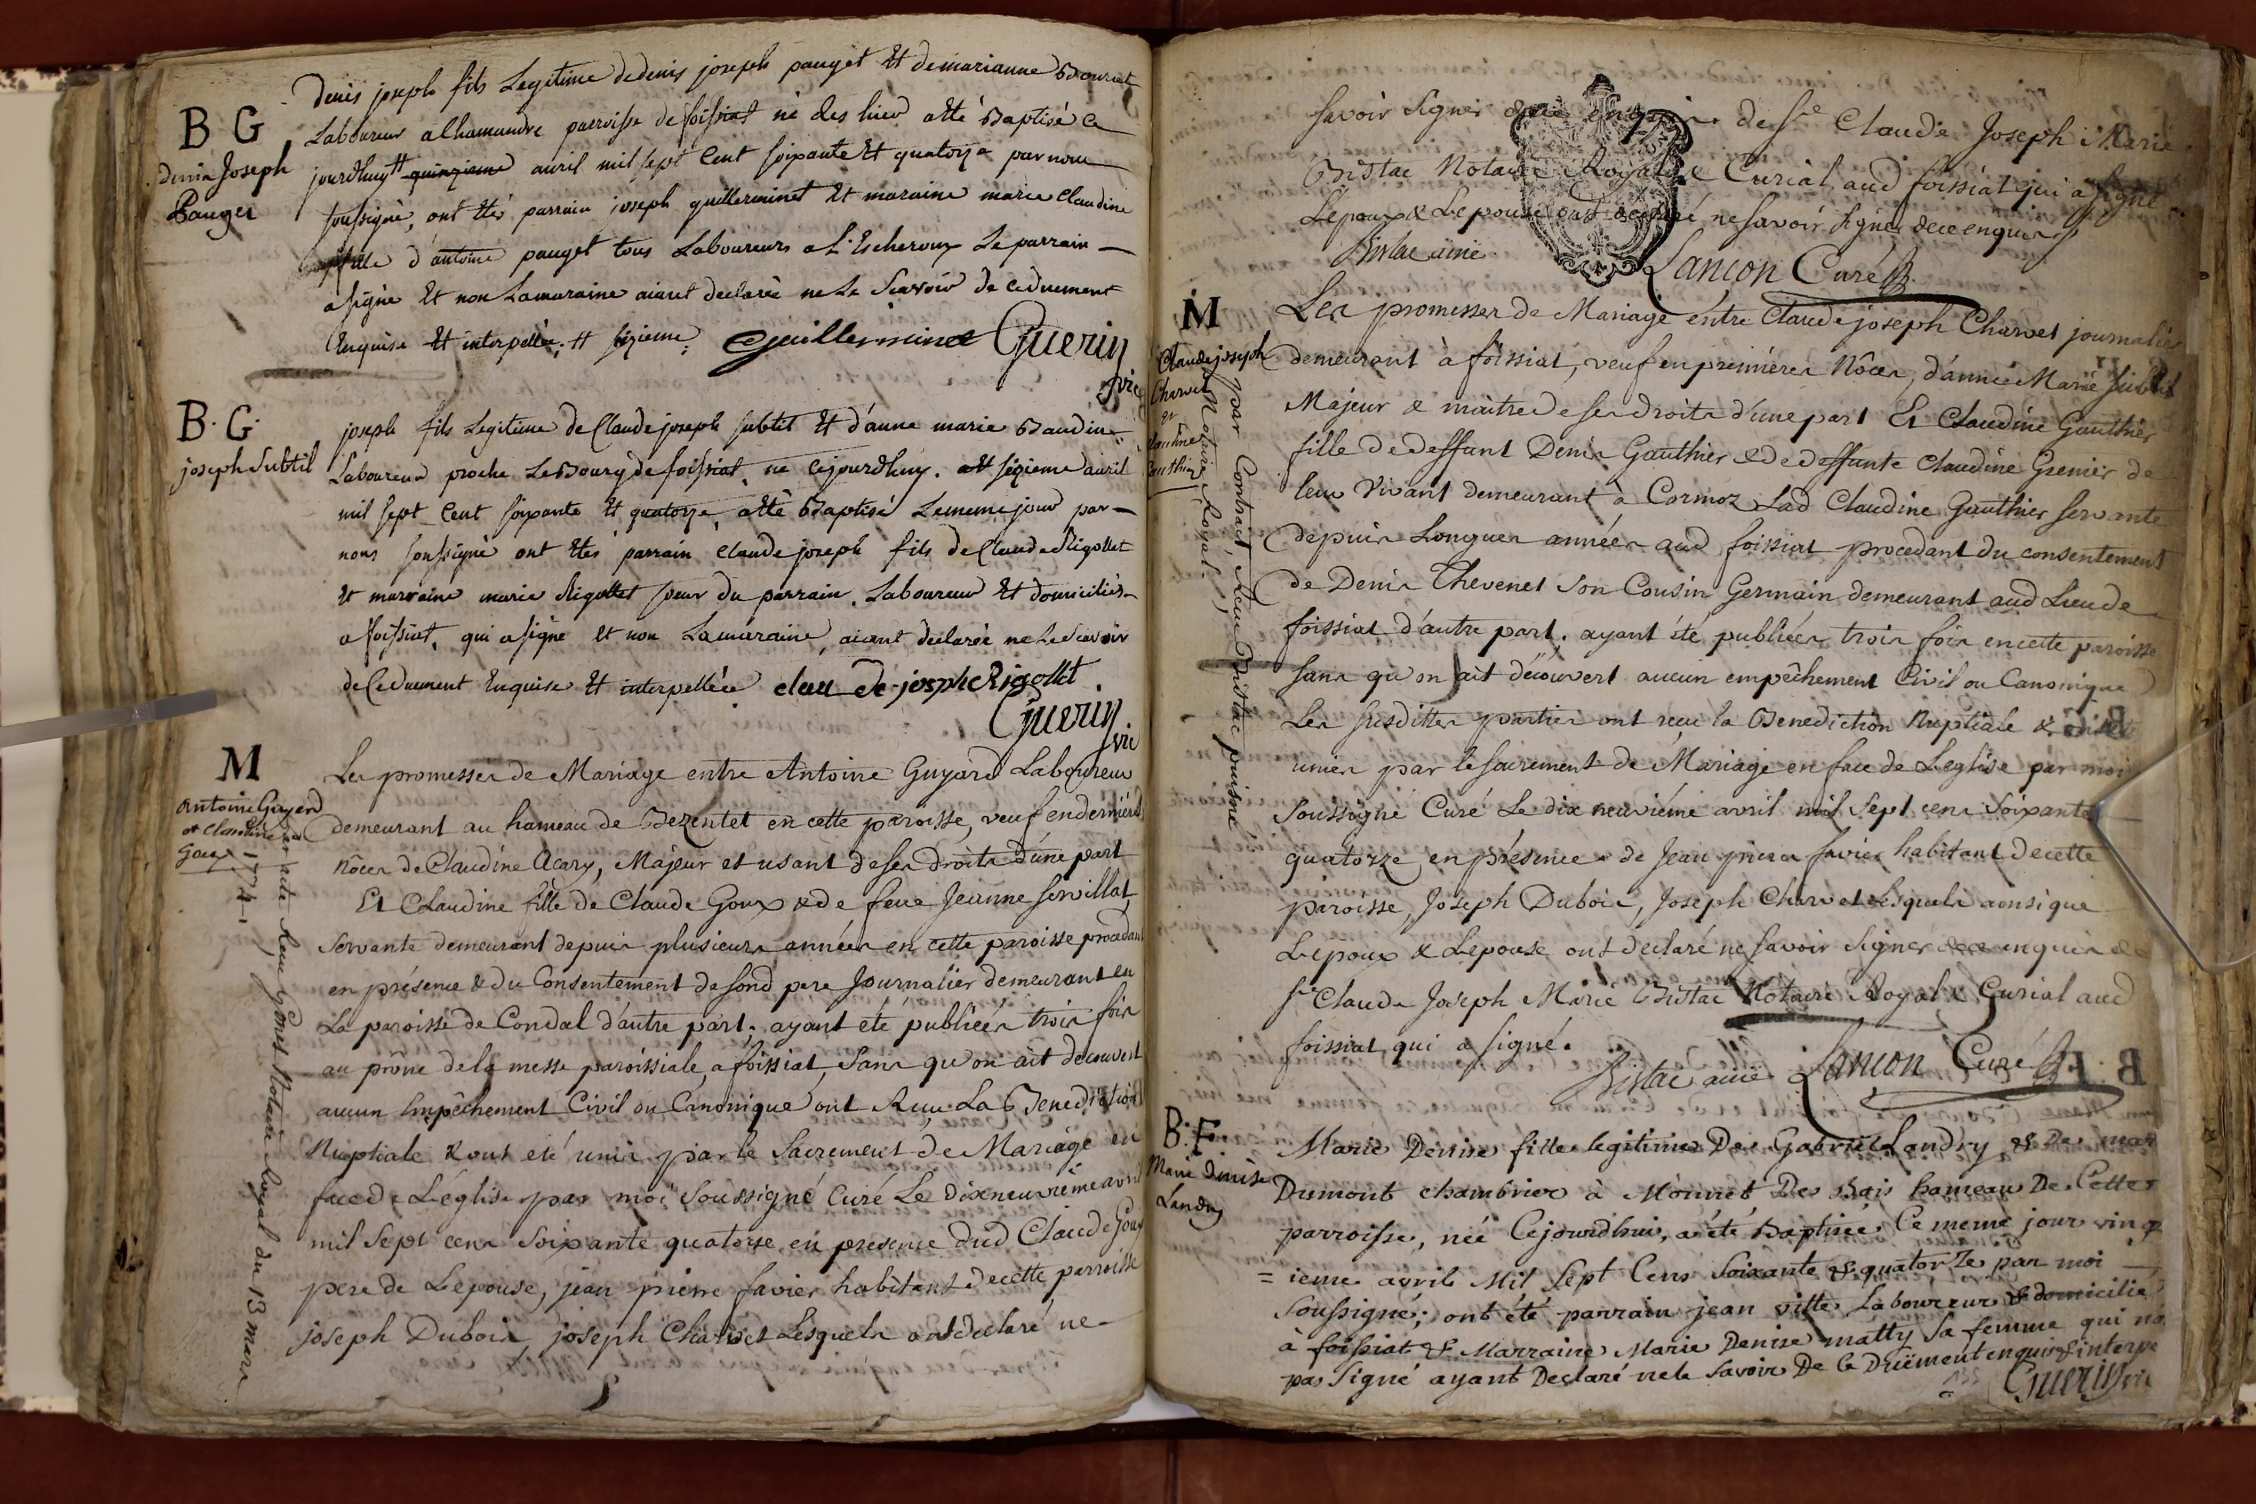 B G
denis Joseph
Pauget
Denis joseph fils Legitime de denis joseph pauget Et de marianne
Laboureur a lhamandre parroisse de foissiat né des hier atté Baptisé ce
jourdhuy # quinzieme auril mil sept Cent soixante Et quatorze par nous
soussigné, ont étés parrain joseph guillerminet Et maraine marie Claudine
fille d'antoine pauget tous Laboureurs a L'Escheroux Le parrain —
a signé Et non La maraine aiant declarée ne Le Scavoir de ce duement
Enquise Et interpellée. # sizieme. Guillerminet Guerin
vic
B. G.
joseph Subtil
joseph fils Legitime de Claude joseph subtil Et d'anne marie Baudin
Laboureur proche Le Bourg de foissiat, né cejourdhuy. sizieme auril
mil sept Cent soixante Et quatorze, atté Baptisé Le meme jour par —
nous soussigné ont étés parrain Claude joseph fils de Claude Rigollet
Et marraine marie Rigollet soeur du parrain. Laboureur Et domiciliés
a foissiat, qui a signé Et non La maraine, aiant declarée ne Le Scavoir
de Ce duement Enquise Et interpellée clau de joseph Rigollet.
Guerin
vic
M
Antoine Guyard
et Claudine
Goux
par acte Reçu Gonet Notaire Royal du 13 mars
1774.
Les promesses de Mariage entre Antoine Guyard Laboureur
demeurant au hameau de Bezentet en cette paroisse, veuf en dernieres
nôces de Claudine Acary, Majeur et usant de ses droits d'une part
Et Claudine fille de Claude Goux & de feue Jeanne Servillat,
Servante demeurant depuis plusieurs années en cette paroisse procedant
en présence & du Consentement de sond pere Journalier demeurant en
La paroisse de Condal d'autre part; ayant été publiées trois fois
au prône de la messe paroissiale, a foissiat, Sans qu'on ait decouvert
aucun Empêchement Civil ou Canonique ont Recu La Benediction
Nuptiale & ont eté unis par le Sacrement de Mariage en
face de L'église par moi Soussigné Curé Le dixneuvième avril
mil Sept cens Soixante quatorze en presence dud Claude Goux
pere de Lepouse, jean pierre favier habitant de cette parroisse
joseph Dubois, joseph Charvet Lesquels ont declaré ne
savoir Signer de ce Enquis de Sr Claude Joseph Marie
Bistac Notaire Royal & Curial aud foissiat qui a signé
L'epoux & Lepouse ont declaré ne savoir signer de ce enquis
Bistac ainé Lançon Curé
M
Claude joseph
Charvet
et
Claudine
Gauthier
par Contrat Recu Bistac puisné
Notaire Royal.
Les promesses de Mariage entre Claude joseph Charvet journalier
demeurant à foissiat, veuf en premières Nôces, d'anne Marie Subtil
Majeur & maitre de ses droits d'une part Et Claudine Gauthier
fille de deffunt Denis Gauthier & de deffunte Claudine Grenier de
leur Vivant demeurant à Cormoz Lad Claudine Gauthier servante
depuis Longues années aud foissiat procedant du consentement
de Denis Thevenet Son Cousin Germain demeurant aud Lieu de
foissiat d'autre part; ayant été publiées trois fois en cette paroisse
sans qu'on ait découvert aucun empêchement Civil ou Canonique
Les susdittes parties ont reçu la Benediction Nuptiale & ont eté
unies par le sacrement de Mariage en face de Leglise par moi
Soussigné Curé Le dix neuviéme avril mil Sept cens Soixante
quatorze en présence de Jean pierre favier habitant de cette
paroisse, Joseph Dubois, Joseph Charvet Lesquels ainsi que
L'epoux & Lepouse ont declaré ne savoir Signer de ce enquis
Sr Claude Joseph Marie Bistac Notaire Royal & Curial aud
foissiat, qui a signé.
Bistac ainé Lançon Curé
B. F.
Marie Denise
Landry
Marie Denise fille legitime De Gabriel Landry & De
Dumont chambrier à Monnet Des Bois hameau De Cette
parroisse, née Cejourdhui, a été Baptisée Ce meme jour vingt
= ieme avril Mil Sept Cens Soixante & quatorze par moi —
Soussigné; ont été parrain jean ville Laboureur & domicilié
à foissiat & Marraine Marie Denise matty sa femme qui n'o
pas signé ayant Declaré ne le Savoir De Ce Duëment enquis & interpe
Guerin vic